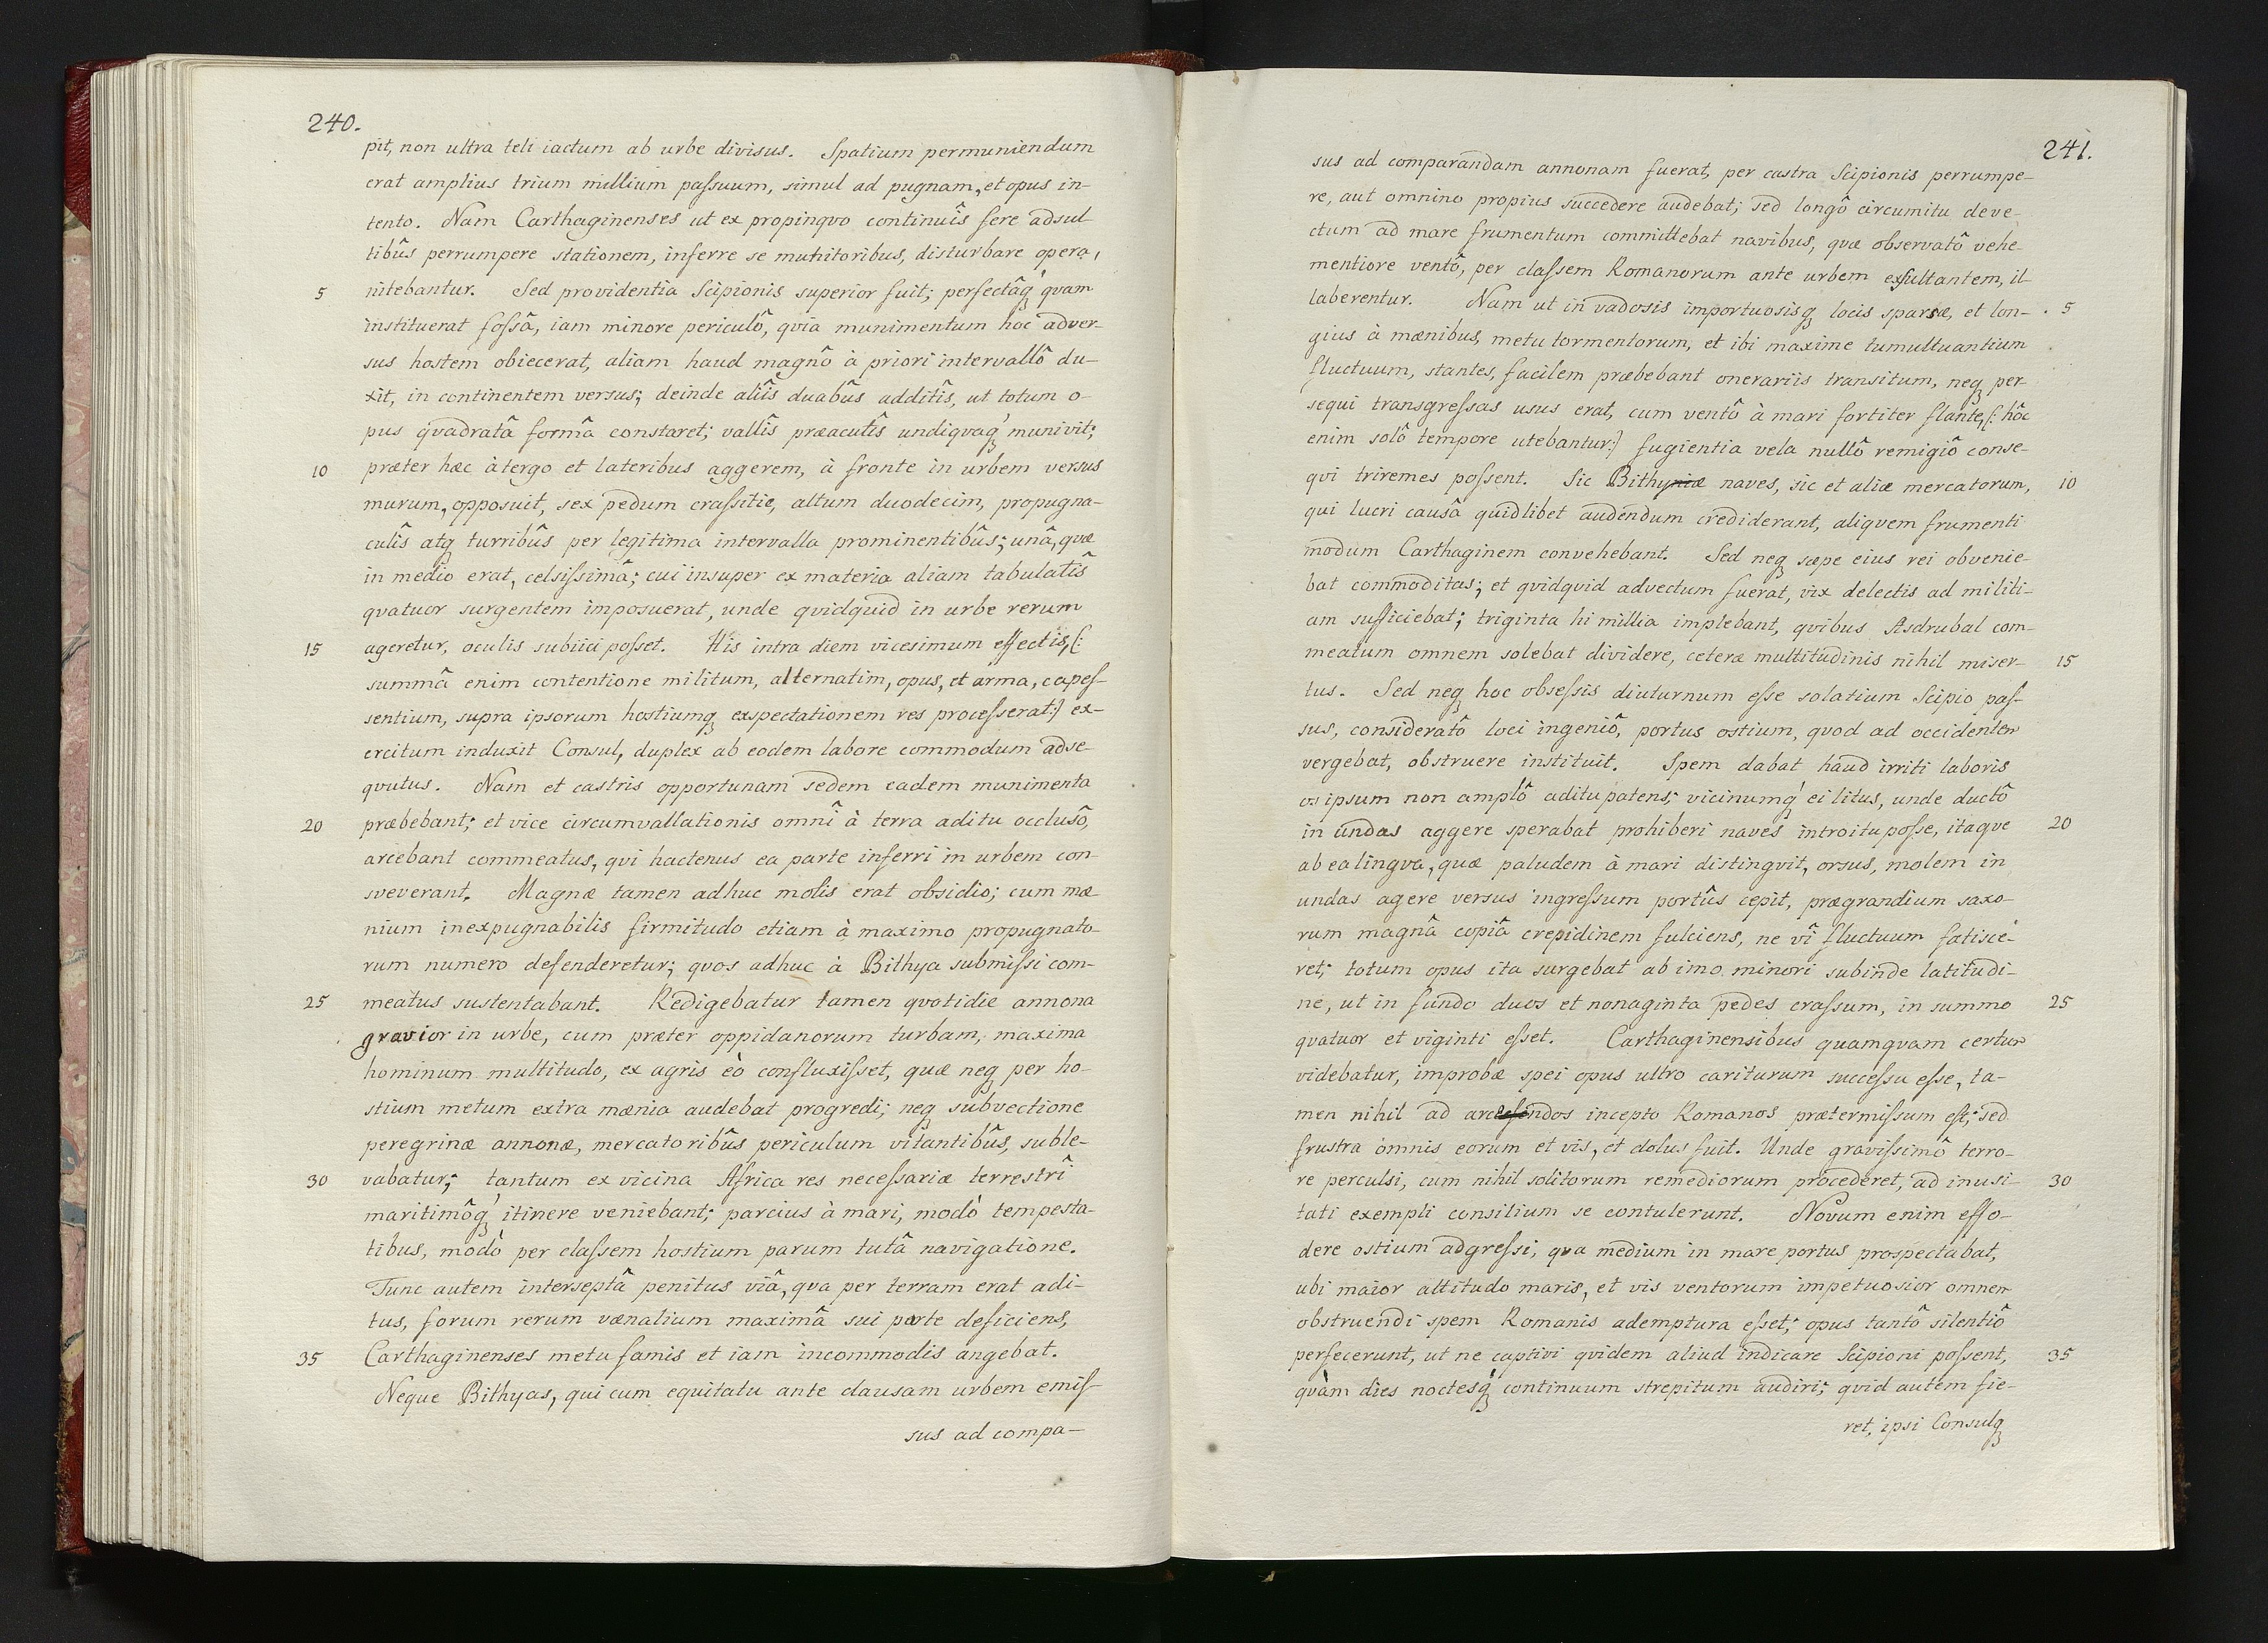 240.
pit, non ultra teli iactum ab urbe divisus. Spatium permuniendum
erat amplius trium millium paſsuum, simul ad pugnam, et opus in-
tento. Nam Carthaginenses ut ex propinqvo continuîs fere adsul
tibûs perrumpere stationem, inferre se munitoribus, disturbare opera,
5 nitebantur. Sed providentia Scipionis superior fuit; perfectâq́ꝫ qvam
instituerat foſsâ, iam minore periculô, qvia munimentum hoc adver-
sus hostem obiecerat, aliam haud magnô à priori intervallô du-
xit, in continentem versus; deinde aliîs duabûs additîs, ut totum o-
pus qvadratâ formâ constaret; vallîs præacutîs undiqvaq́ꝫ munivit;
10 præter hæc àtergo et lateribus aggerem, à fronte in urbem versus
murum, opposuit, sex pedum craſsitie, altum duodecim, propugna-
culîs atqꝫ turribûs per legitima intervalla prominentibûs; unâ, qvæ
in medio erat, celsiſsimâ; cui insuper ex materia aliam tabulatîs
qvatuor surgentem imposuerat, unde qvidqvid in urbe rerum
15 ageretur, oculis subiici poſset. His intra diem vicesimum effectis, (:
summâ enim contentione militum, alternatim, opus, et arma, capeſ-
sentium, supra ipsorum hostiumqꝫ exspectationem res proceſserat:) ex-
ercitum induxit Consul, duplex ab eodem labore commodum adse-
qvutus. Nam et castris opportunam sedem eadem munimenta
20 præbebant; et vice circumvallationis omnî à terra aditu occlusô,
arcebant commeatus, qvi hactenus ea parte inferri in urbem con-
sveverant. Magnæ tamen adhuc molis erat obsidio; cum mæ
nium inexpugnabilis firmitudo etiam à maximo propugnato-
rum numero defenderetur; qvos adhuc à Bithya submiſsi com-
25 meatus sustentabant. Redigebatur tamen qvotidie annona
gravior in urbe, cum præter oppidanorum turbam, maxima
hominum multitudo, ex agris eò confluxiſset, quæ neqꝫ per ho-
stium metum extra mænia audebat progredi; neqꝫ subvectione
peregrinæ annonæ, mercatoribûs periculum vitantibûs, suble-
30 vabatur; tantum ex vicina Africa res neceſsariæ terrestrî
maritimôq́ꝫ itinere veniebant; parcius à mari, modò tempesta-
tibus, modò per claſsem hostium parum tutâ navigatione.
Tunc autem interseptâ penitus viâ, qva per terram erat adi-
tus, forum rerum vænalium maximâ sui parte deficiens,
35 Carthaginenses metu famis et iam incommodis angebat.
Neque Bithyas, qui cum equitatu ante clausam urbem emiſ-
sus ad compa-
241.
sus ad comparandam annonam fuerat, per castra Scipionis perrumpe-
re, aut omnino propius succedere audebat; sed longô circumitu deve-
ctum ad mare frumentum committebat navibus, quæ observatô vehe-
mentiore ventô, per claſsem Romanorum ante urbem exsultantem, il
laberentur. Nam ut in vadosis importuosisqꝫ locis sparsæ, et lon- 5
gius à mænibus, metu tormentorum, et ibi maxime tumultuantium
fluctuum, stantes, facilem præbebant onerariis transitum, neqꝫ per-
sequi transgreſsas usus erat, cum ventô à mari fortiter flante, (: hôc
enim solô tempore utebantur:) fugientia vela nullô remigiô conse-
qvi triremes poſsent. Sic Bithyniæ naves, sic et aliæ mercatorum, 10
qui lucri causâ quidlibet audendum crediderant, aliqvem frumenti
modum Carthaginem convehebant. Sed neqꝫ sæpe eius rei obvenie-
bat commoditas; et qvidqvid advectum fuerat, vix delectis ad militi-
am sufficiebat; triginta hi millia implebant, qvibus Asdrubal com-
meatum omnem solebat dividere, ceteræ multitudinis nihil miser- 15
tus. Sed neqꝫ hoc obseſsis diuturnum eſse solatium Scipio paſ-
sus, consideratô loci ingeniô, portus ostium, qvod ad occidentem
vergebat, obstruere instituit. Spem dabat haud irriti laboris
os ipsum non amplô aditu patens; vicinumq́ꝫ ei litus, unde ductô
in undas aggere sperabat prohiberi naves introitu poſse, itaqve 20
ab ea lingva, quæ paludem à mari distingvit, orsus, molem in
undas agere versus ingreſsum portûs cepit, prægrandium saxo-
rum magnâ copiâ crepidinem fulciens, ne vî fluctuum fatisce-
ret; totum opus ita surgebat ab imo minori subinde latitudi-
ne, ut in fundo duos et nonaginta pedes craſsum, in summo 25
qvatuor et viginti eſset. Carthaginensibus quamqvam certum
videbatur, improbæ spei opus ultro cariturum succeſsu eſse, ta-
men nihil ad arcendos incepto Romanos prætermiſsum eſt; sed
frustra omnis eorum et vis, et dolus fuit. Unde graviſsimô terro-
re perculsi, cum nihil solitorum remediorum procederet, ad inusi- 30
tati exempli consilium se contulerunt. Novum enim effo-
dere ostium adgreſsi, qva medium in mare portus prospectabat,
ubi maior altitudo maris, et vis ventorum impetuosior omnem
obstruendi spem Romanis ademptura eſset; opus tantô silentiô
perfecerunt, ut ne captivi qvidem aliud indicare Scipioni poſsent, 35
qvàm dies noctesq́ꝫ continuum strepitum audiri; qvid autem fie-
ret, ipsi Consulqꝫ